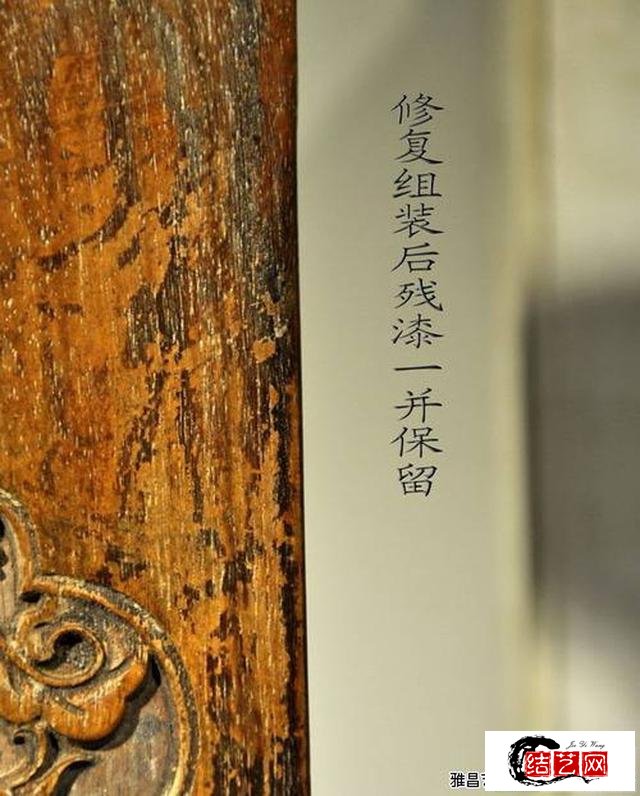 修复组装后残漆一并保留
雅昌艺
Jie Yi Wang
结艺网